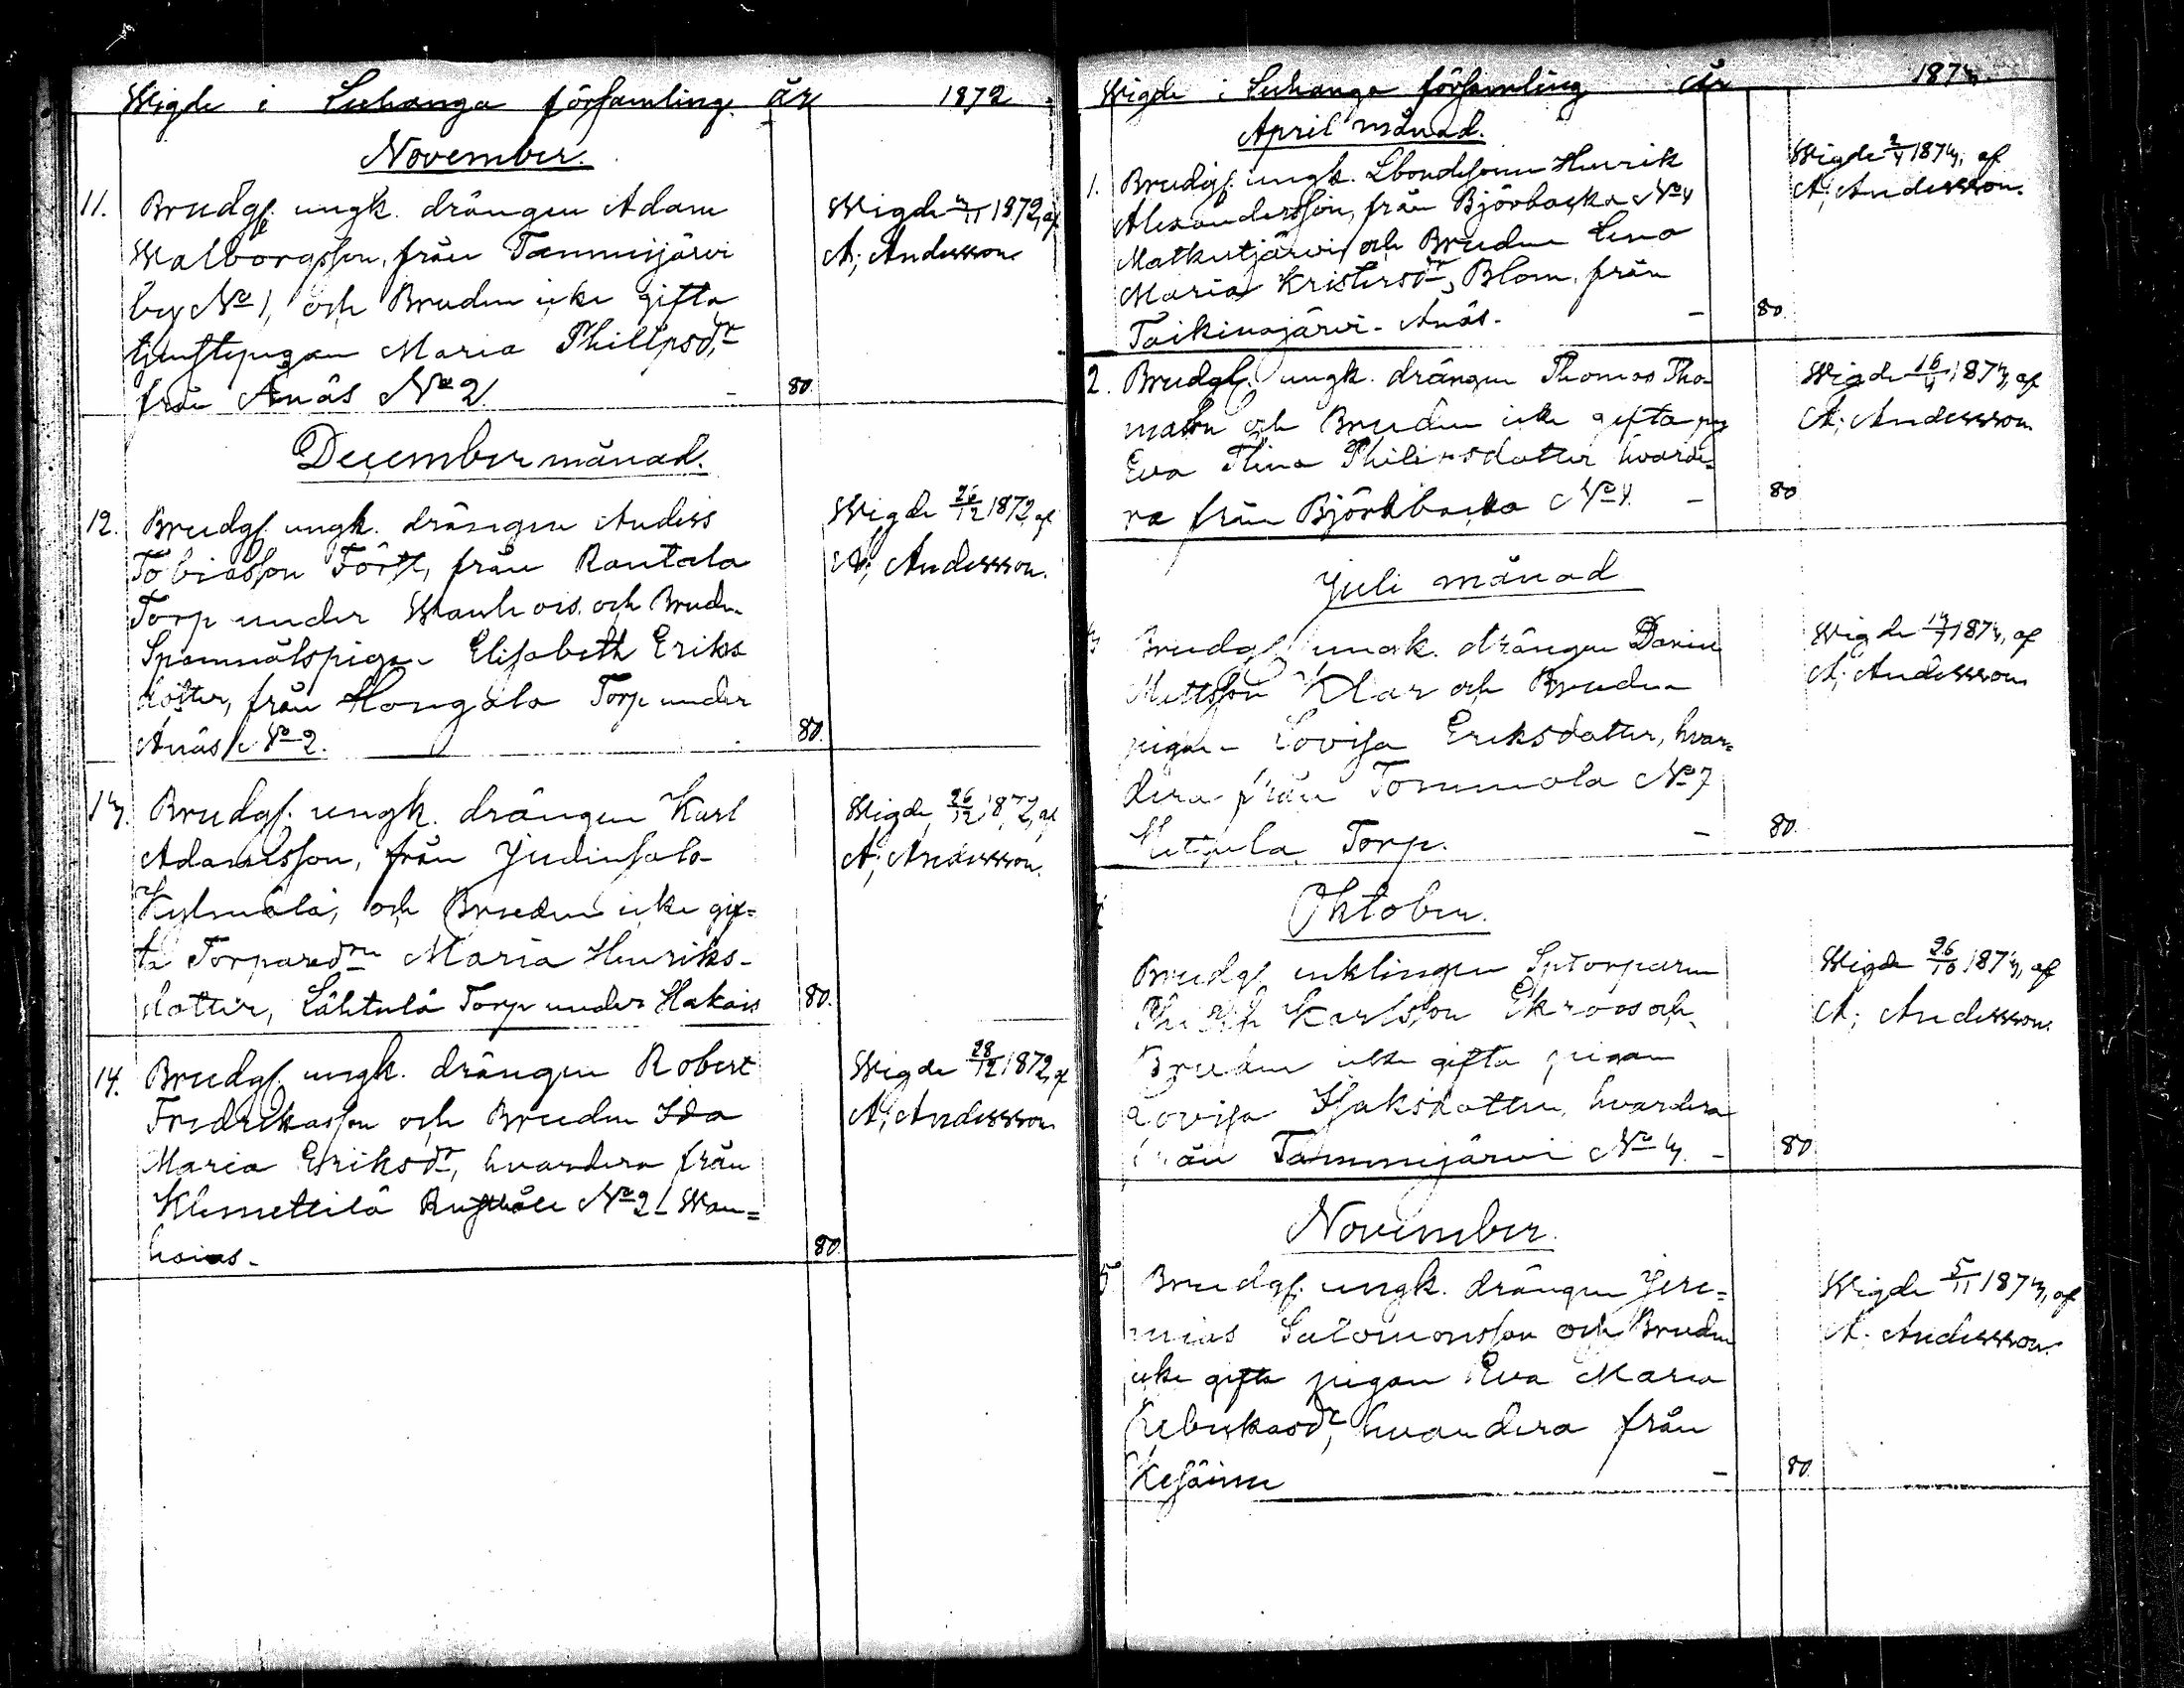 Wigde i Luhanga församling år 1872
November.
11. Brudgs. ungk. drängen Adam
Walborgsson, från Tammijärvi
by No 1, och Bruden icke gifta
tjenstepigan Maria Philipsdr
från Anäs No 2. - 80.
Wigde 3/11 1872, af
A; Andersson
December månad.
12. Brudgs. ungk. drängen Anders
Tobiasson Först, från Rantala
Torp under Wanhois och Brudn
Spannmålspigan Elisabeth Eriks
dotter, från Hongala Torp under
Anäs No 2. 80.
Wigde 26/12 1872, af
A; Andersson.
13. Brudgs. ungk. drängen Karl
Adamsson, från Judinsalo
Kylmälä, och Bruden icke gif=
ta Torparedrn Maria Henriks-
dotter, Lähtelä Torp under Hakais 80.
Wigde 26/12 1872, af
A; Andersson.
14. Brudgs. ungk. drängen Robert
Fredriksson och Bruden Ida
Maria Eriksdr, hvardera från
Klemettilä Rusthåll No 2 Wan=
hois. 80.
Wigde 28/12 1872, af
A; Andersson
Wigde i Luhanga församling år 1873.
April månad.
1. Brudgs. ungk. Lbondesonen Henrik
Alexandersson, från Björbacka No 4
Matkutjärvi och Bruden Lena
Maria Kristersdr, Blom, från
Taikinajärvi - Anäs. - 80.
Wigde 2/4 1873, af
A; Andersson.
2. Brudgs. ungk. drängen Thomas Tho-
masson och Bruden icke gifta pig
Eva Stina Philipsdotter hvarde-
ra från Björkbacka No 4. - 80
Wigde 16/4 1873, af
A; Andersson
Juli månad
3 Brudgs. ungk. drängen Daniel
Mattsson Klar och Bruden
pigan Lovisa Eriksdotter, hvar=
dera från Tommola No 7
Torp. - 80.
Wigde 13/7 1873, af
A; Andersson
Oktober.
Brudgs enklingen Sptorparen
Karlsson Ekroos och
Bruden icke gifta pigan
Lovisa Isaksdotter, hvardera
från Tammijärvi No 3. - 80
Wigde 26/10 1873, af
A; Andersson.
November.
5 Brudgs. ungk. drängen Jere=
mias Salomonsson och Bruden
icke gifta pigan Eva Maria
hvardera från
- 80.
Wigde 5/11 1873, af
A. Andersson.